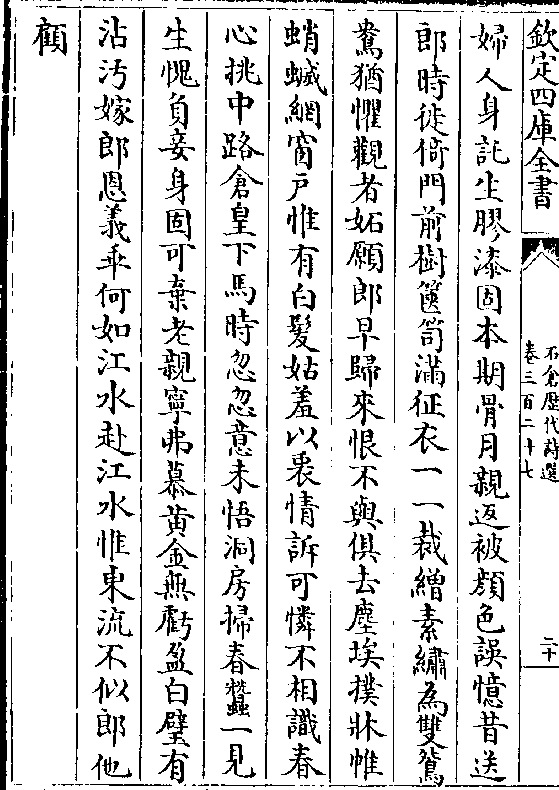 欽定四庫全書
石倉歷代詩選
卷三百二十七
二十
婦人身託生膠漆固本期骨月親返被顔色誤憶昔送
郎時徙倚門前樹篋笥滿征衣一一裁繒素繡為雙鴛
鴦猶懼觀者妬願郎早歸來恨不與俱去塵埃撲牀帷
蛸蝛網窗户惟有白髮姑羞以衷情訴可憐不相識春
心挑中路倉皇下馬時忽忽意未悟洞房掃春蠶一見
生愧負妾身固可棄老親寧弗慕黄金無虧盈白璧有
沾汚嫁郎恩義乖何如江水赴江水惟東流不似郎他
顧